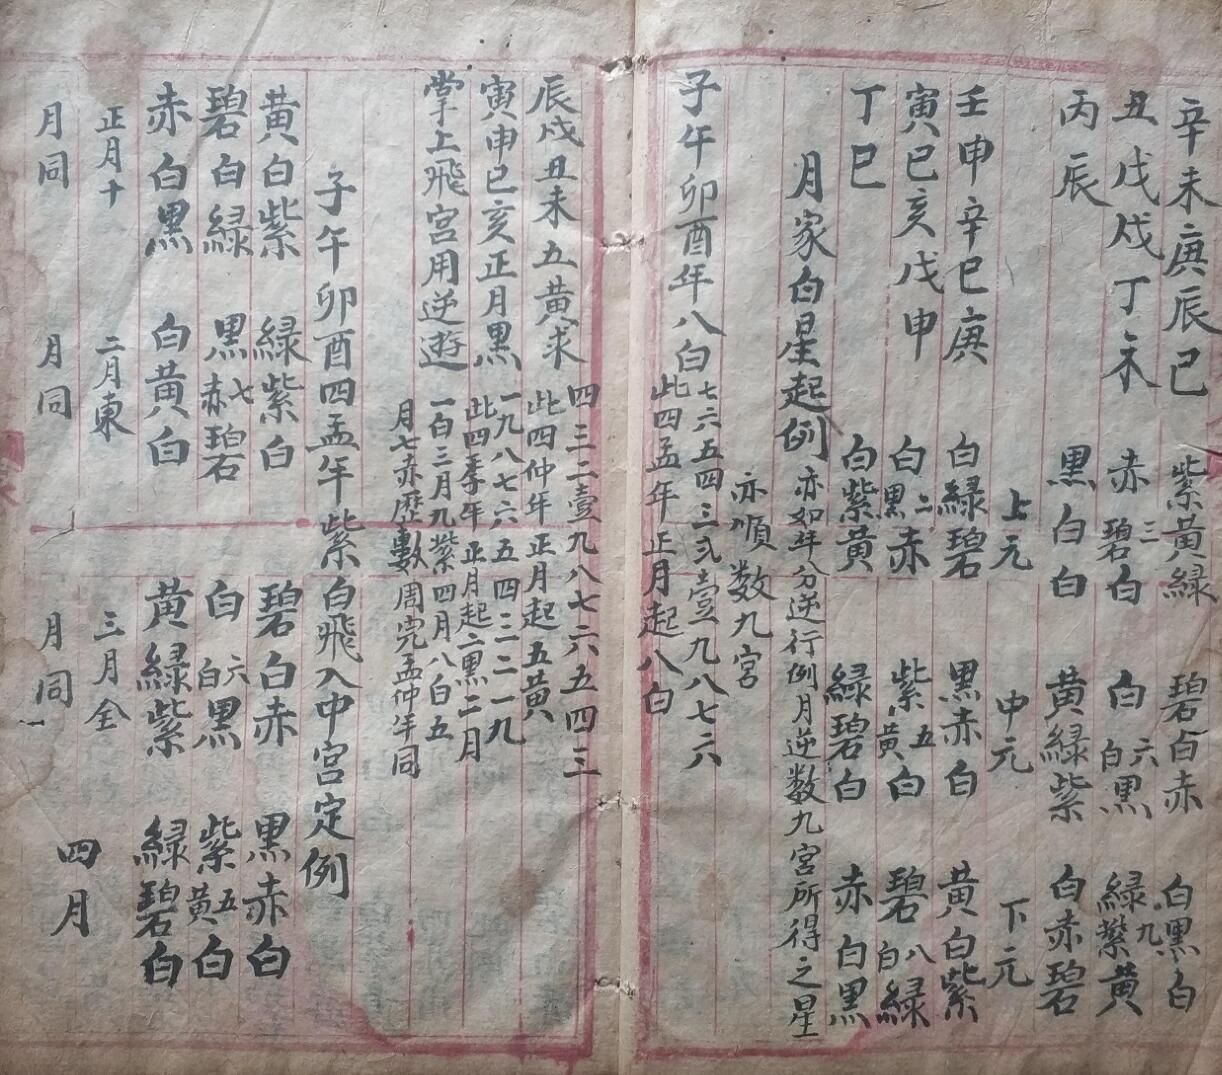 辛未庚辰己 紫黄緑 碧白赤 白黒白
丑戊戌丁未 赤碧三白 白白六黒 緑九紫黄
丙辰 黒白白 黄緑紫 白赤碧
上元 中元 下元
壬申辛巳庚 白緑碧 黒赤白 黄白紫
寅巳亥戊申 白黒二赤 紫黄五白 碧白八緑
丁巳 白紫黄 緑碧白 赤白黒
月家白星起例 亦如年分逆行例月逆数九宮所得之星
亦順数九宮
子午卯酉年八白 七六五四三弍壹九八七六
此四孟年正月起八白
辰戌丑未五黄求 四三二壹九八七六五四三
此四仲年正月起五黄
寅申巳亥正月黒 一九八七六五四三二一九
此四季年正月起二黒二月
掌上飛宮用逆遊 一白三月九紫四月八白五
月七赤歷數周完孟仲年同
子午卯酉四孟年紫白飛入中宮定例
黄白紫 緑紫白 碧白赤 黒赤白
碧白緑 黒赤七碧 白白六黒 紫黄五白
赤白黒 白黄白 黄緑紫 緑碧白
正月十 二月東 三月全 四月
月同 月同 月同